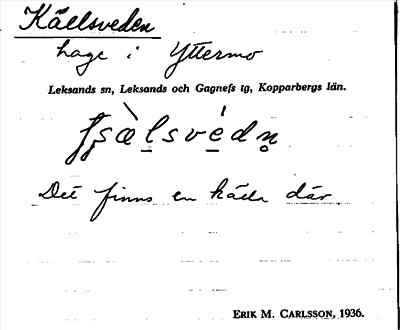 Källsveden
hage i Yttermo
Leksands sn, Leksands och Gagnefs tg, Kopparbergs län.
Det finns en källa där.
ERIK M. CARLSSON, 1936.